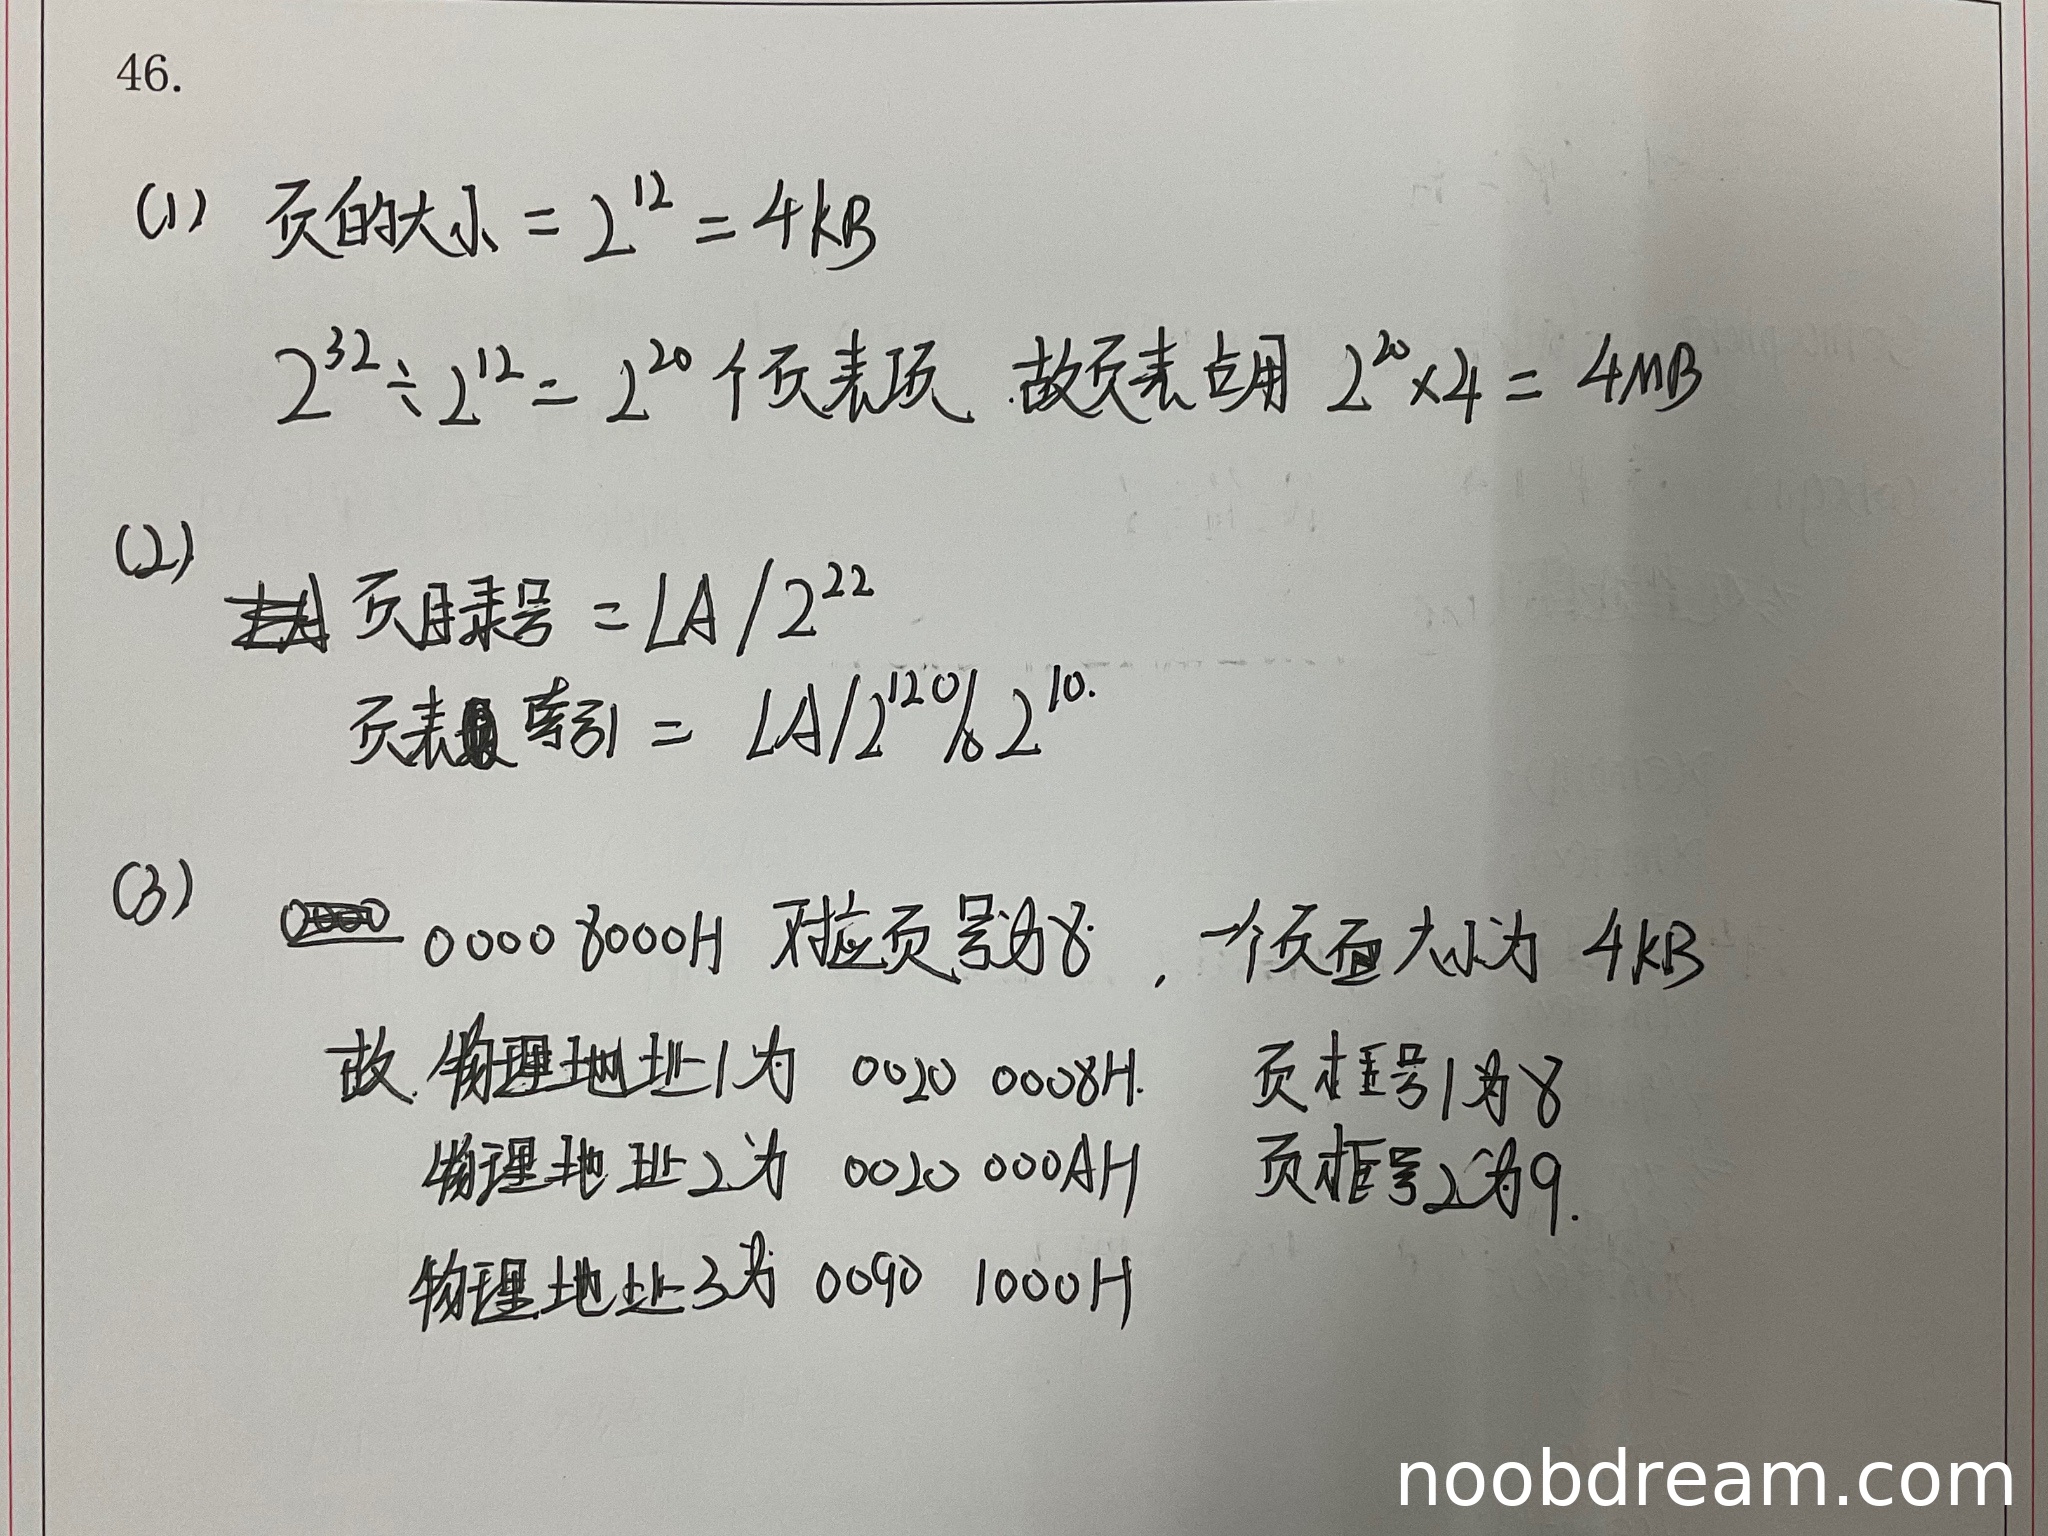 46.
(1) 页的大小 = 2^12 = 4KB
2^32 ÷ 2^12 = 2^20 个页表项 故页表占用 2^20 × 4 = 4MB
(2)
页目录号 = LA / 2^22
页表索引 = LA / 2^12 % 2^10.
(3) 0000 8000H 对应页号为8 , 一个页面大小为 4KB
故 物理地址1为 0020 0008H. 页框号1为8
物理地址2为 0020 000AH 页框号2为9.
物理地址3为 0090 1000H
noobdream.com